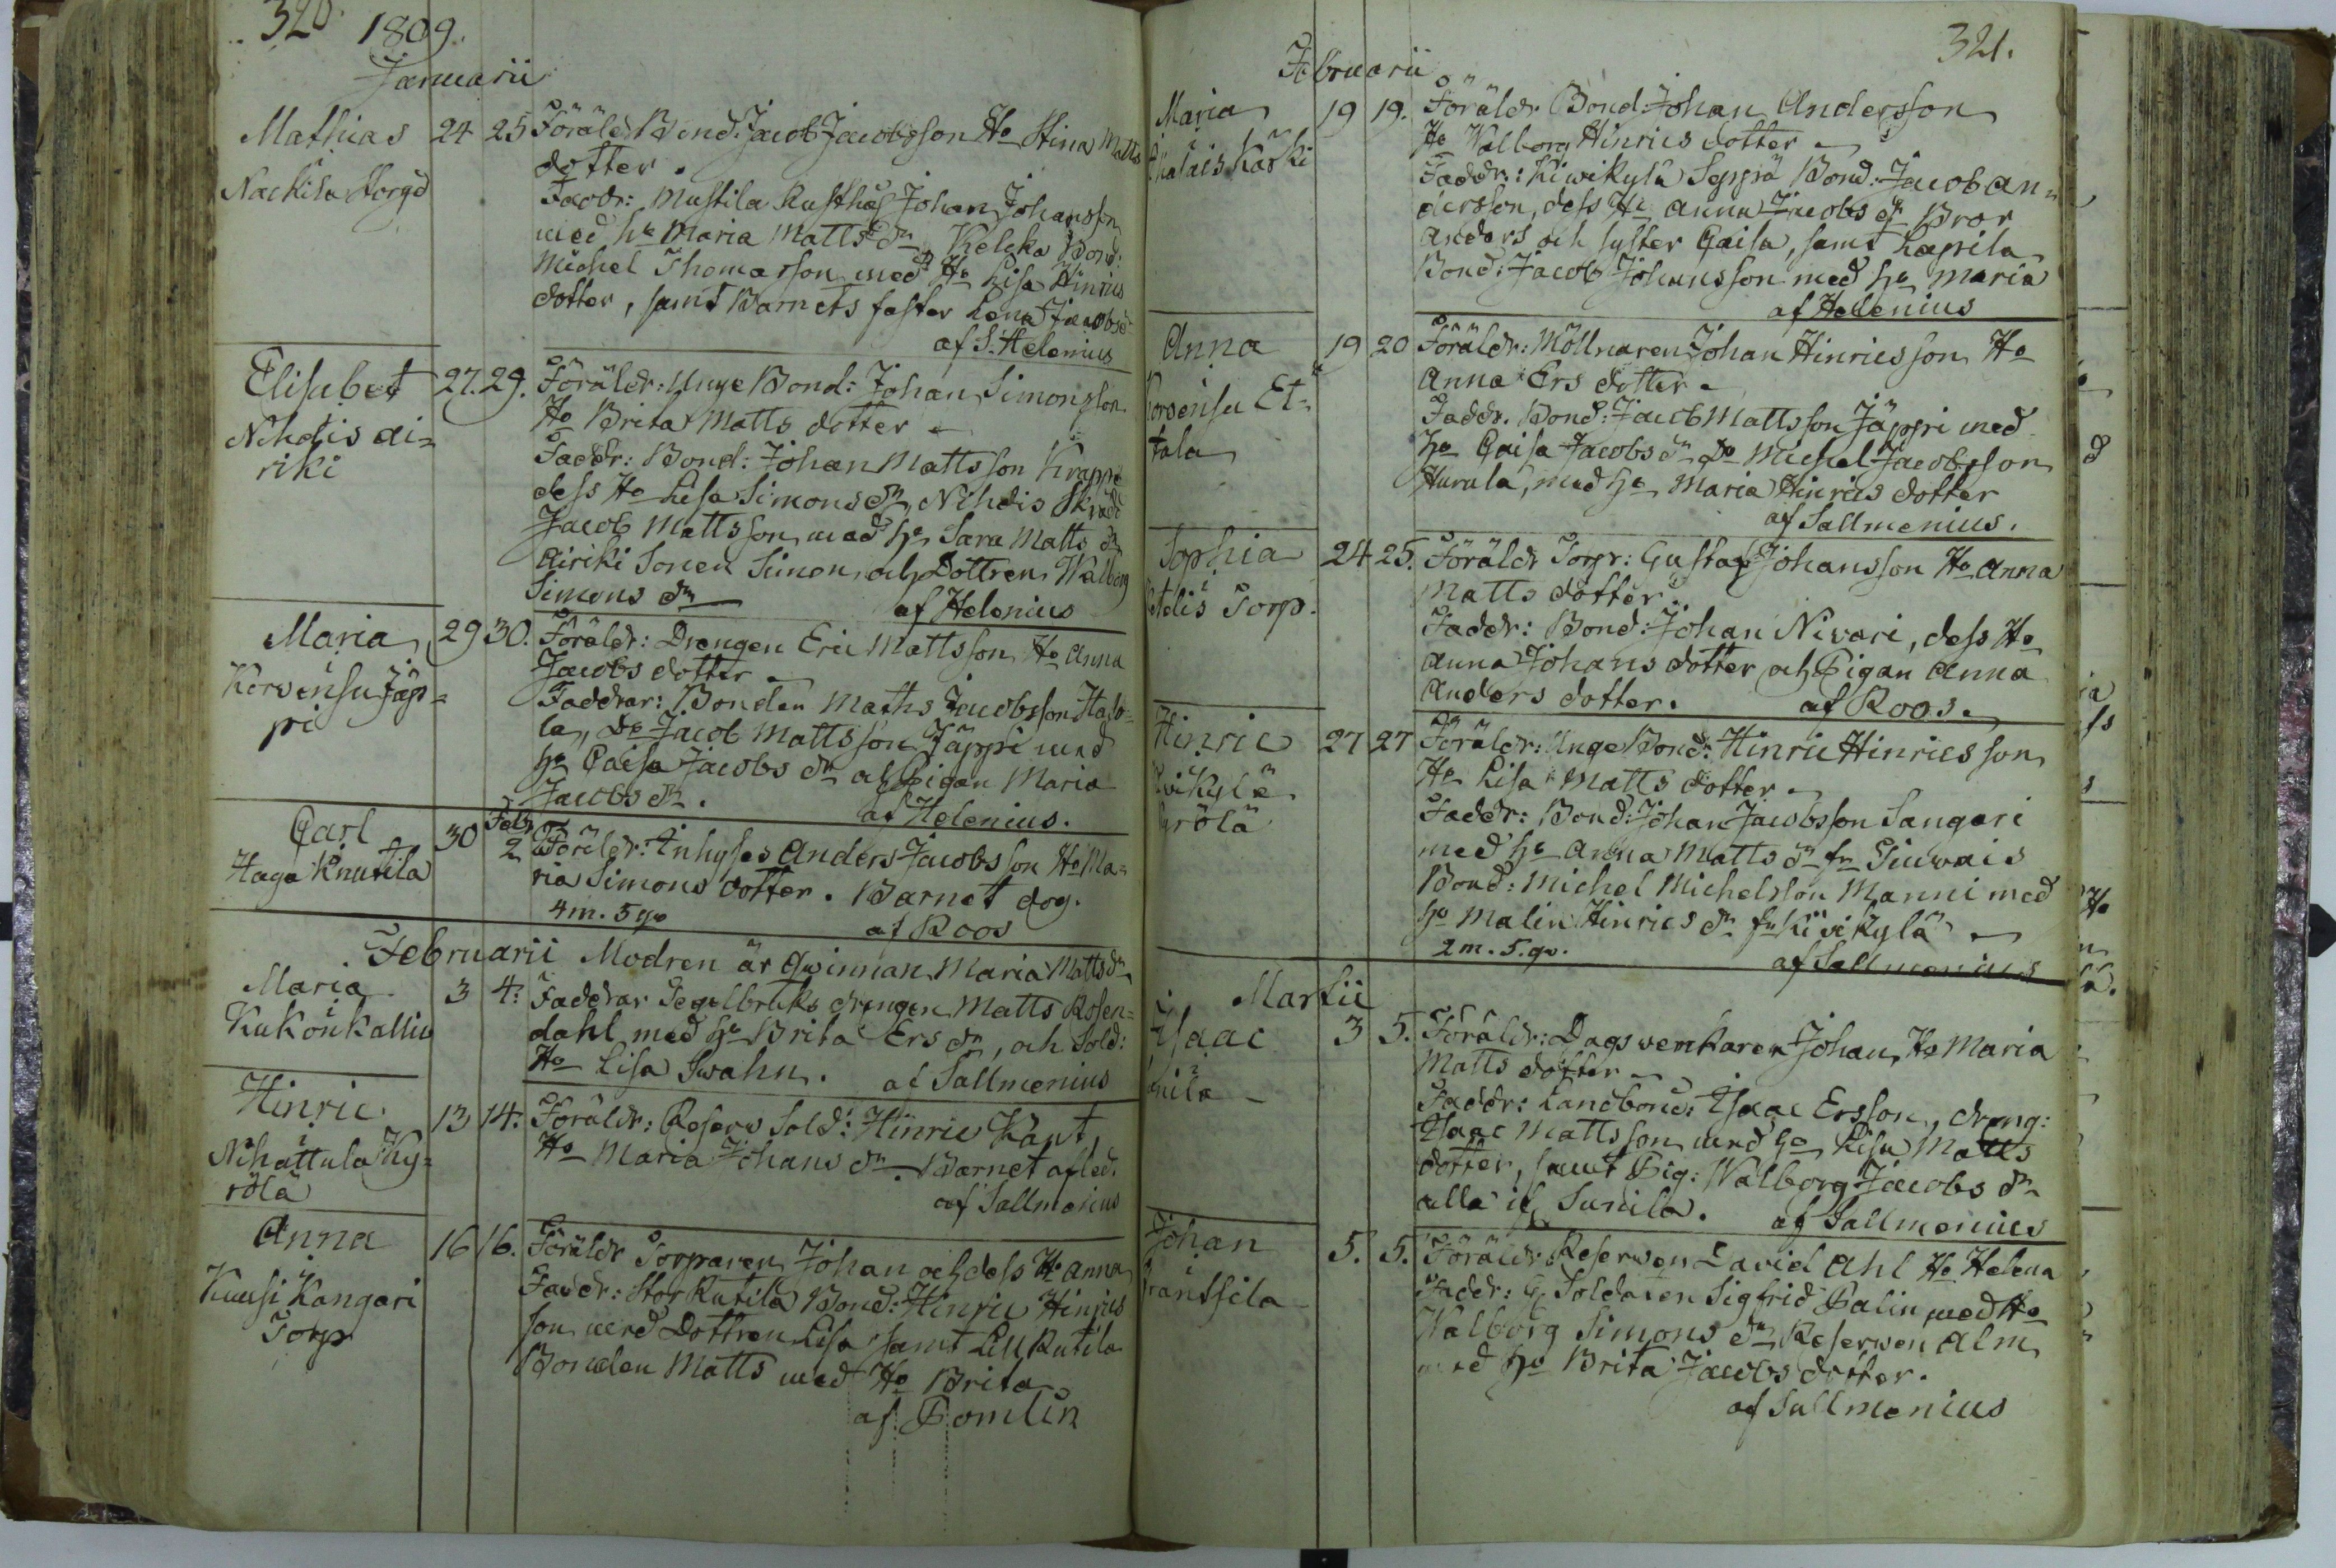 320. 1809.
Januarii
Mathias 24 25 Föräld Bond: Jacob Jacobsson Ho Stina Matts
dotter.
Nackila Storgd
Faddr: Mustila Rusthål Johan Johansson
med ho Maria Matts dr, Keleka Bond:
Michel Thomasson med Ho Lisa Hinrics
dotter, samt Barnets faster Lena Jacobsd
af S. Helenius
Elisabet 27. 29. Föräldr: Unge Bond: Johan Simonsson
Ho Brita Matts dotter
Nihdis ai=
riki
Faddr: Bond: Johan Mattsson Krappe
dess Ho Lisa Simons dr, Nihdis Skrädd
Jacob Mattsson med ho Sara Matts dr
Airiki Sonen Simon, och Dottren Walborg
Simons dr af Helenius
Maria 29 30. Föräldr: Drengen Eric Mattsson Ho Anna
Jacobs dotter
Korvensu Jäp=
pi
Faddrar: Bonden Maths Jacobsson Halo=
la, Do Jacob Mattsson Jäppi med
ho Caisa Jacobs dr och Pigan Maria
Jacobs dr. af Helenius.
Carl 30 Febr 2 Föräldr: Inhyses Anders Jacobsson Ho Ma=
ria Simons dotter. Barnet dog.
Haga Knutila
4 m. 5 qv af Roos
Februarii Modren är Qwinnan Maria Matts dr
Maria 3 4: Faddrar Tegelbruks drengen Matts Rosen=
Kukonkallio
dahl med ho Brita Ers dr, och Sold:
Ho Lisa Swahn. af Sallmenius
Hinric 13 14: Föräldr: Reserv Sold: Hinric Kant,
Ho Maria Johans dr. Barnet afled.
Nihattula Ky=
rölä
af Sallmenius
Anna 16 16. Föräldr Torparen Johan och dess Ho Anna
Kuusi Kangari
Torp
Faddr: Stor Rutila Bond: Hinric Hinrics
son med Dottren Lisa samt Lill Rutila
Bonden Matts med Ho Brita
af Pomlin
321.
Februarii
Maria 19 19. Föräldr. Bond: Johan Andersson
Ho Walborg Hinrics dotter
Karki
Faddr: Kiwikylä Seppä Bond: Jacob An=
dersson, dess Ho Anna Jacobs dr Bror
Anders och syster Caisa, samt Lapila
Bond: Jacob Johansson med ho Maria
af Helenius
Anna 19 20 Föräldr: Möllnaren Johan Hinricsson Ho
Anna Ers dotter
Korvensu Et=
tala
Faddr. Bond: Jacob Mattsson Jäppi med
ho Caisa Jacobs dr Do Michel Jacobsson
Hurula, med ho Maria Hinrics dotter
af Sallmenius.
Sophia 24 25. Föräldr Torpr: Gustaf Johansson Ho Anna
Matts dotter
Torp.
Faddr: Bond: Johan Nivari, dess Ho
Anna Johans dotter och Pigan Anna
Anders dotter. af Roos.
Hinric 27 27 Föräldr: Unge Bond: Hinric Hinricsson
Ho Lisa Matts dotter
Kivikylä
Faddr: Bond: Johan Jacobsson Sangari
med ho Anna Matts dr fr Sinvais
Bond: Michel Michelsson Manni med
ho Malin Hinrics dr fr Kivikylä
2 m. 5. qv. af Sallmenius
Martii
Isaac 3 5. Föräldr: Dagswerkaren Johan, Ho Maria
Matts dotter
Faddr: Landbond: Isaac Ersson, dreng:
Isaac Mattsson med ho Lisa Matts
dotter, samt Pig: Walborg Jacobs dr
alla ifr Sunila. af Sallmenius
Johan 5. 5. Föräldr Reserven David Ahl Ho Helena
Frantsila
Faddr: Soldaten Sigfrid Palin med Ho
Walborg Simons dr, Reserven Alm
med ho Brita Jacobs dotter.
af Sallmenius